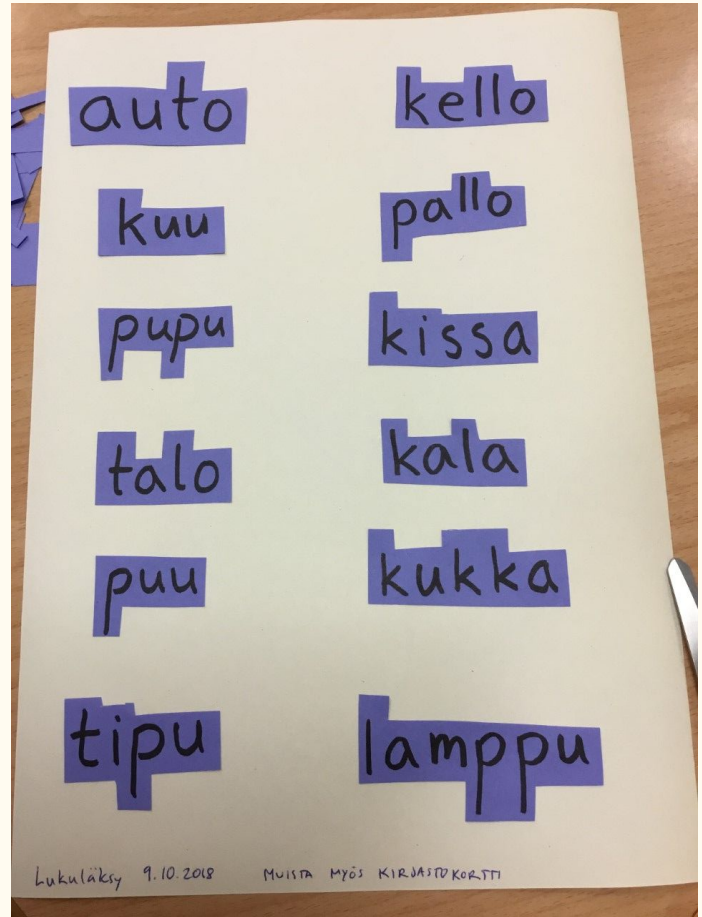 auto
kuu
pupu
talo
puu
tipu
kello
pallo
kissa
kala
kukka
lamppu
Lukuläksy 9.10.2018 MUISTA MYÖS KIRJASTOKORTTI